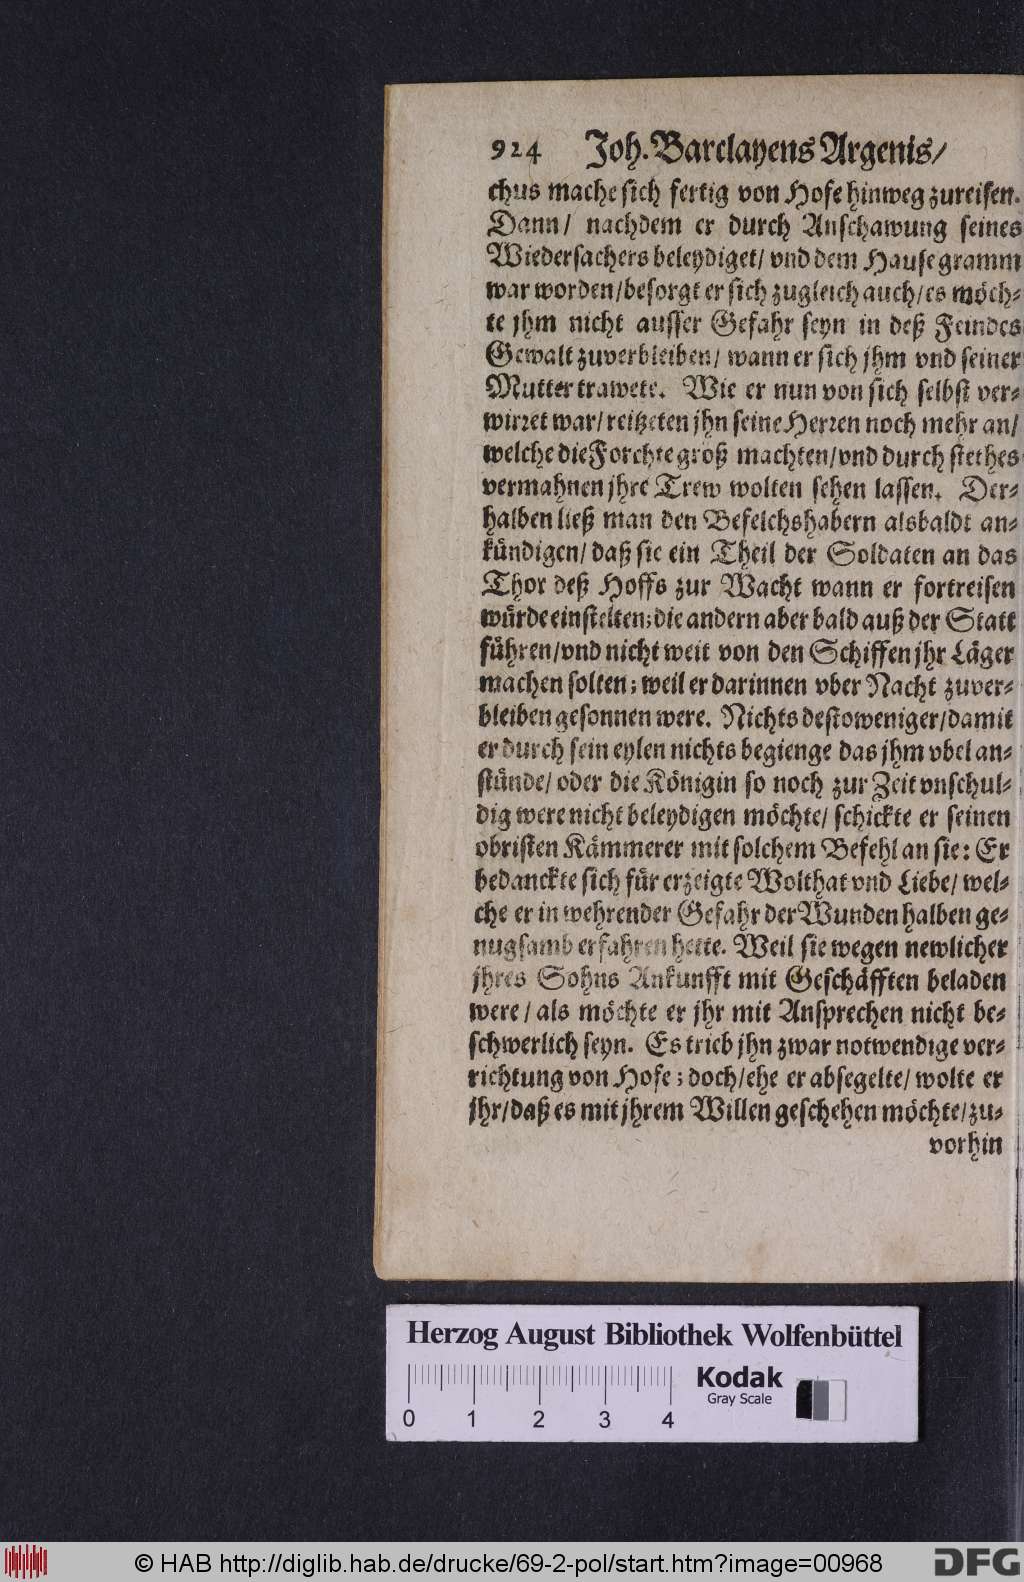 924 Joh. Barclayens Argenis/
chus mache sich fertig von Hofe hinweg zureisen.
Dann/ nachdem er durch Anschawung seines
Wiedersachers beleydiget/ vnd dem Hause gramm
war worden/ besorgt er sich zugleich auch/ es möch-
te jhm nicht ausser Gefahr seyn in deß Feindes
Gewalt zuverbleiben/ wann er sich jhm vnd seiner
Mutter trawete. Wie er nun von sich selbst ver-
wirret war/ reitzeten jhn seine Herren noch mehr an/
welche die Forchte groß machten/ vnd durch stethes
vermahnen jhre Trew wolten sehen lassen. Der-
halben ließ man den Befelchshabern alsbaldt an-
kündigen/ daß sie ein Theil der Soldaten an das
Thor deß Hoffs zur Wacht wann er fortreisen
würde einstelten; die andern aber bald auß der Statt
führen/ vnd nicht weit von den Schiffen jhr Läger
machen solten; weil er darinnen vber Nacht zuver-
bleiben gesonnen were. Nichts destoweniger/ damit
er durch sein eylen nichts begienge das jhm vbel an-
stünde/ oder die Königin so noch zur Zeit vnschul-
dig were nicht beleydigen möchte/ schickte er seinen
obristen Kämmerer mit solchem Befehl an sie: Er
bedanckte sich für erzeigte Wolthat vnd Liebe/ wel-
che er in wehrender Gefahr der Wunden halben ge-
nugsamb erfahren hette. Weil sie wegen newlicher
jhres Sohns Ankunfft mit Geschäfften beladen
were/ als möchte er jhr mit Ansprechen nicht be-
schwerlich seyn. Es trieb jhn zwar notwendige ver-
richtung von Hofe; doch/ ehe er absegelte/ wolte er
jhr/ daß es mit jhrem Willen geschehen möchte/ zu-
vorhin
Herzog August Bibliothek Wolfenbüttel
Kodak
Gray Scale
0 1 2 3 4
© HAB http://diglib.hab.de/drucke/69-2-pol/start.htm?image=00968
DFG